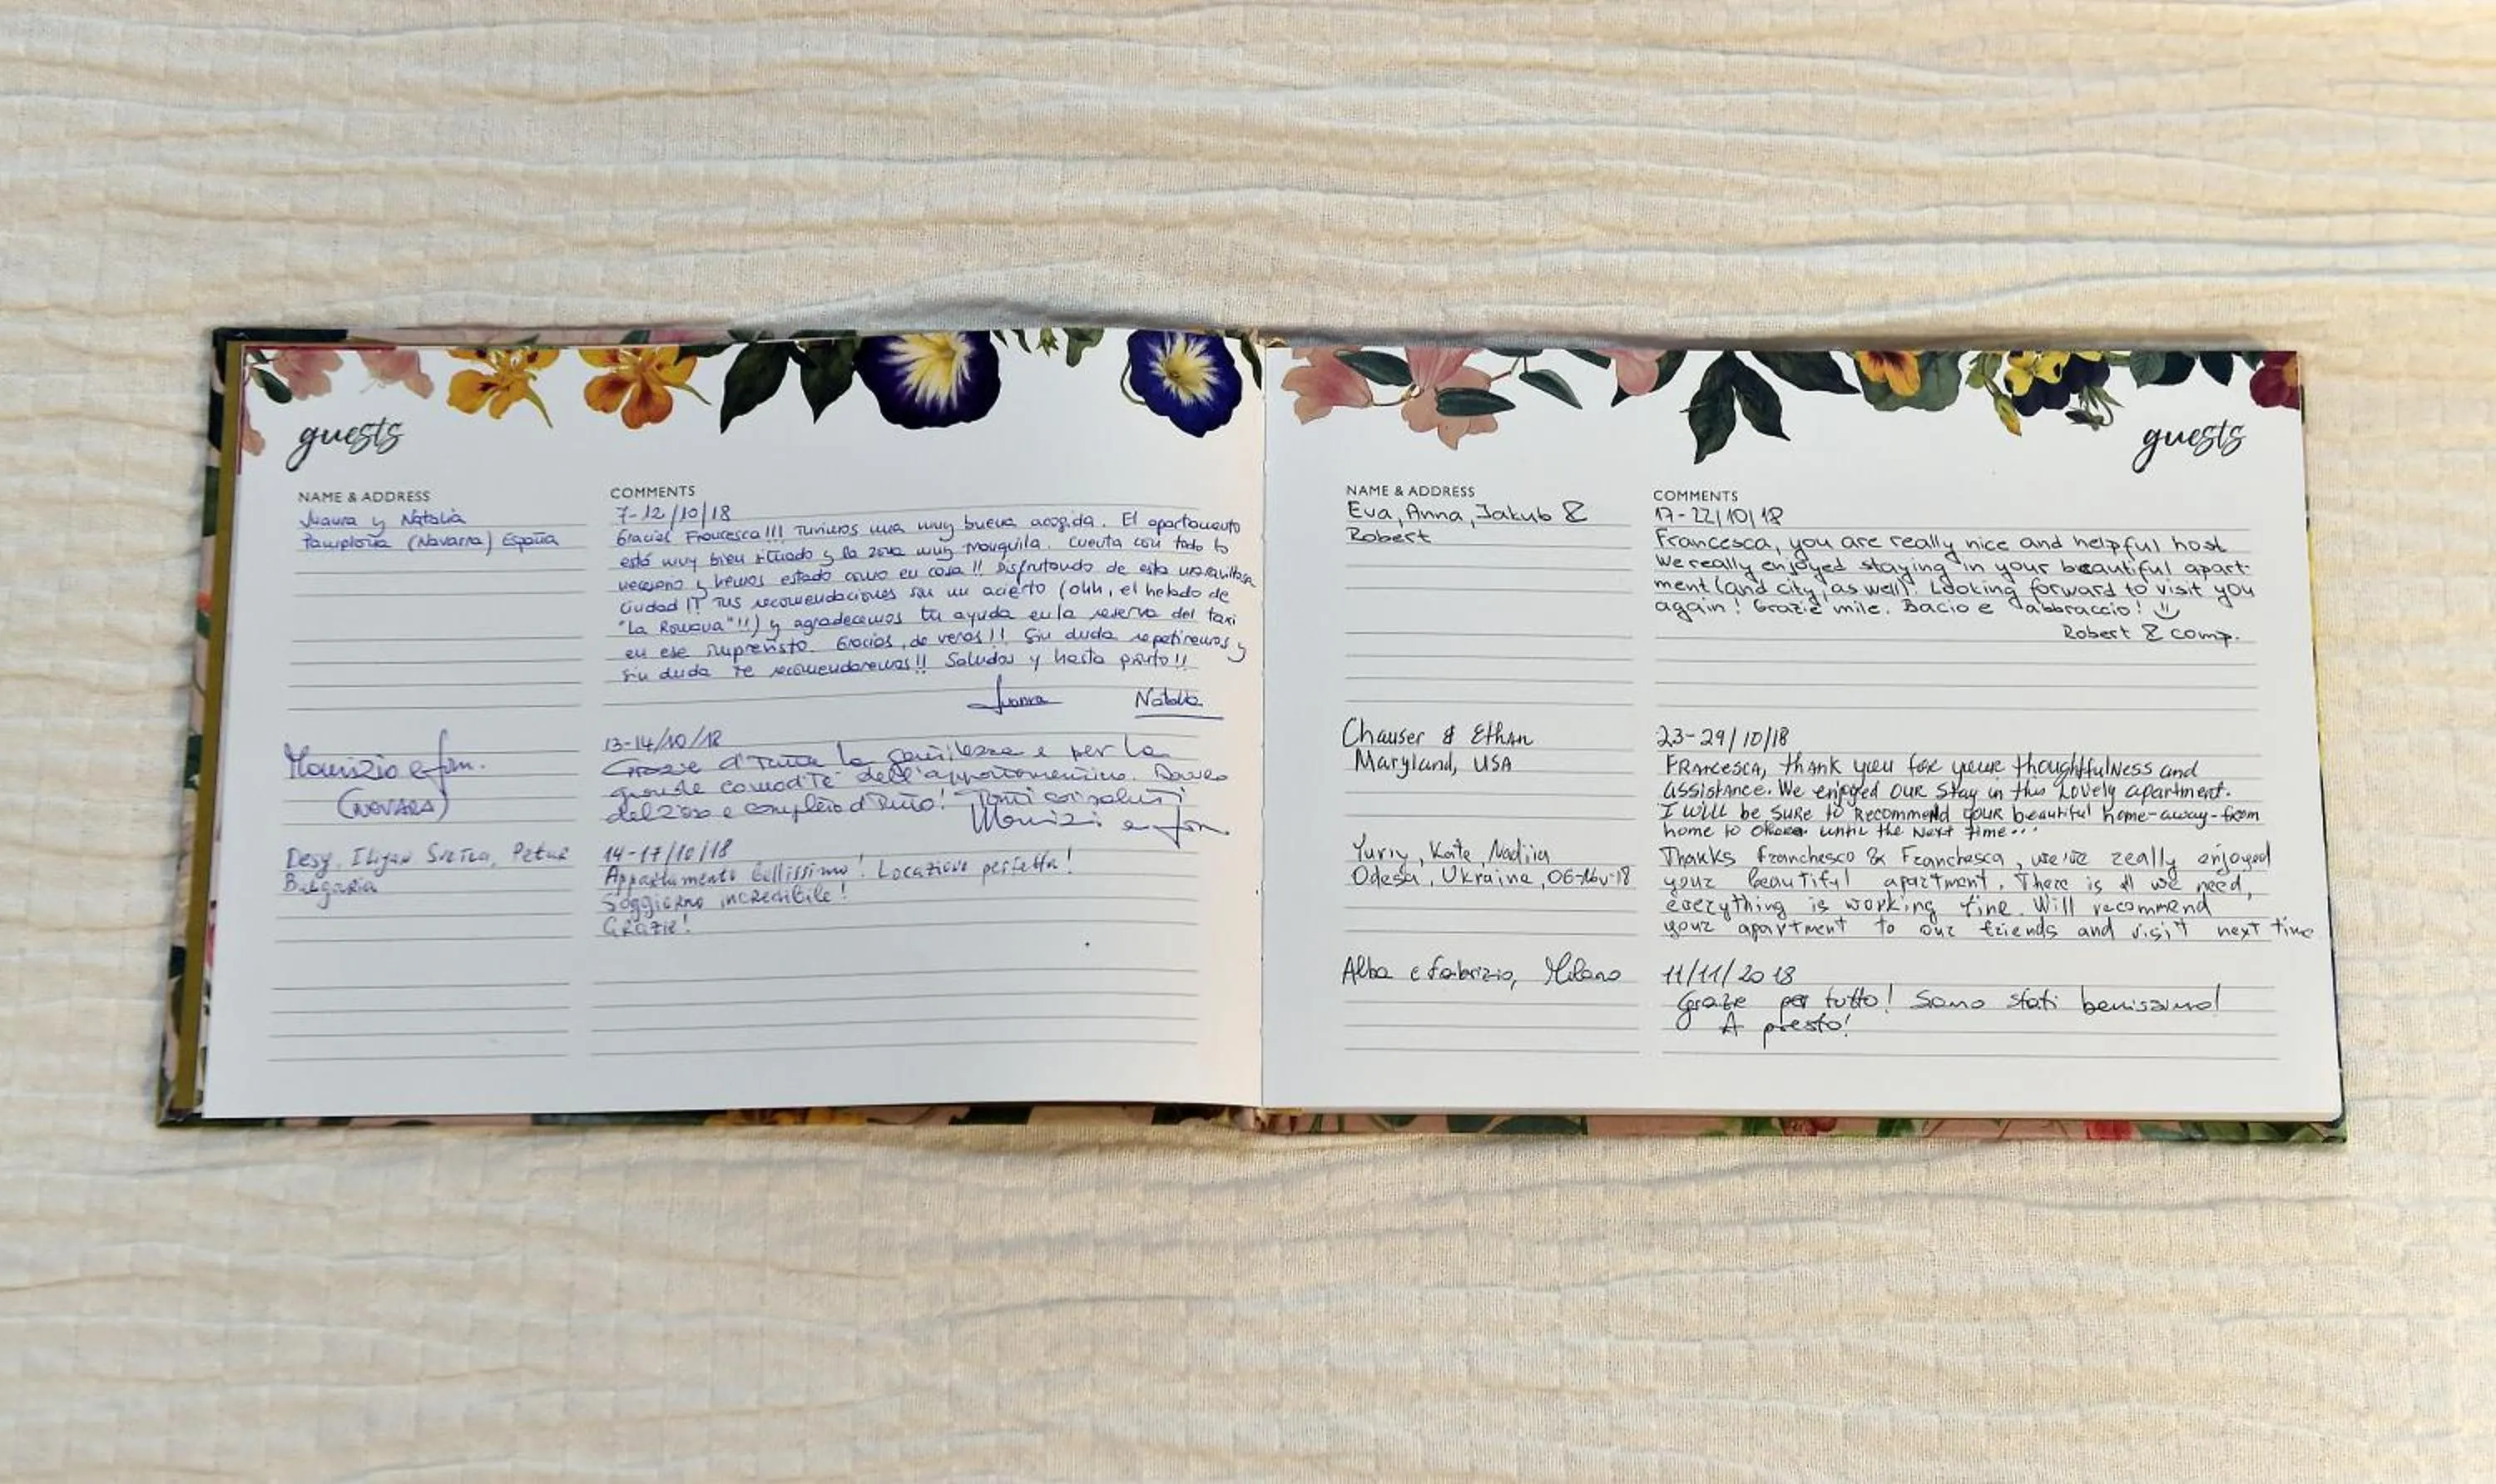 guests
NAME & ADDRESS
COMMENTS
Juana y Natalia
Pamplona (Navarra) España
7-12/10/18
Gracias Francesca!!! Tuvimos una muy buena acogida. El apartamento
está muy bien situado y la zona muy tranquila. Cuenta con todo lo
necesario y hemos estado como en casa!! Disfrutando de esta maravillosa
ciudad!! Tus recomendaciones son un acierto (ohh, el helado de
"La Romana"!!) y agradecemos tu ayuda en la reserva del taxi
en ese imprevisto. Gracias, de veras!! Sin duda repetiremos y
sin duda te recomendaremos!! Saludos y hasta pronto!!
Juana Natalia
Maurizio e fam.
(NOVARA)
13-14/10/18
Grazie di tutta la gentilezza e per la
grande comodità dell'appartamentino.
e completo di tutto! Tanti cari saluti
Maurizio e fam.
Desy, Iliyan Svetla, Petar
Bulgaria
14-17/10/18
Appartamento bellissimo! Locazione perfetta!
Soggiorno incredibile!
Grazie!
guests
NAME & ADDRESS
COMMENTS
Eva, Anna, Jakub &
Robert
17-22/10/18
Francesca, you are really nice and helpful host
We really enjoyed staying in your beautiful apart-
ment (and city, as well). Looking forward to visit you
again! Grazie mile. Bacio e abbraccio!
Robert & comp.
Chauser & Ethan
Maryland, USA
23-29/10/18
Francesca, thank you for your thoughtfulness and
assistance. We enjoyed our stay in this lovely apartment.
I will be sure to recommend your beautiful home-away-from
home to until the next time...
Yuriy, Kate, Nadiia
Odesa, Ukraine, 06-Nov-18
Thanks Franchesco & Franchesca, we've really enjoyed
your beautiful apartment. There is all we need,
everything is working fine. Will recommend
your apartment to our friends and visit next time
Alba e Fabrizio, Milano
11/11/2018
Grazie per tutto! Sono stati benissimo!
A presto!